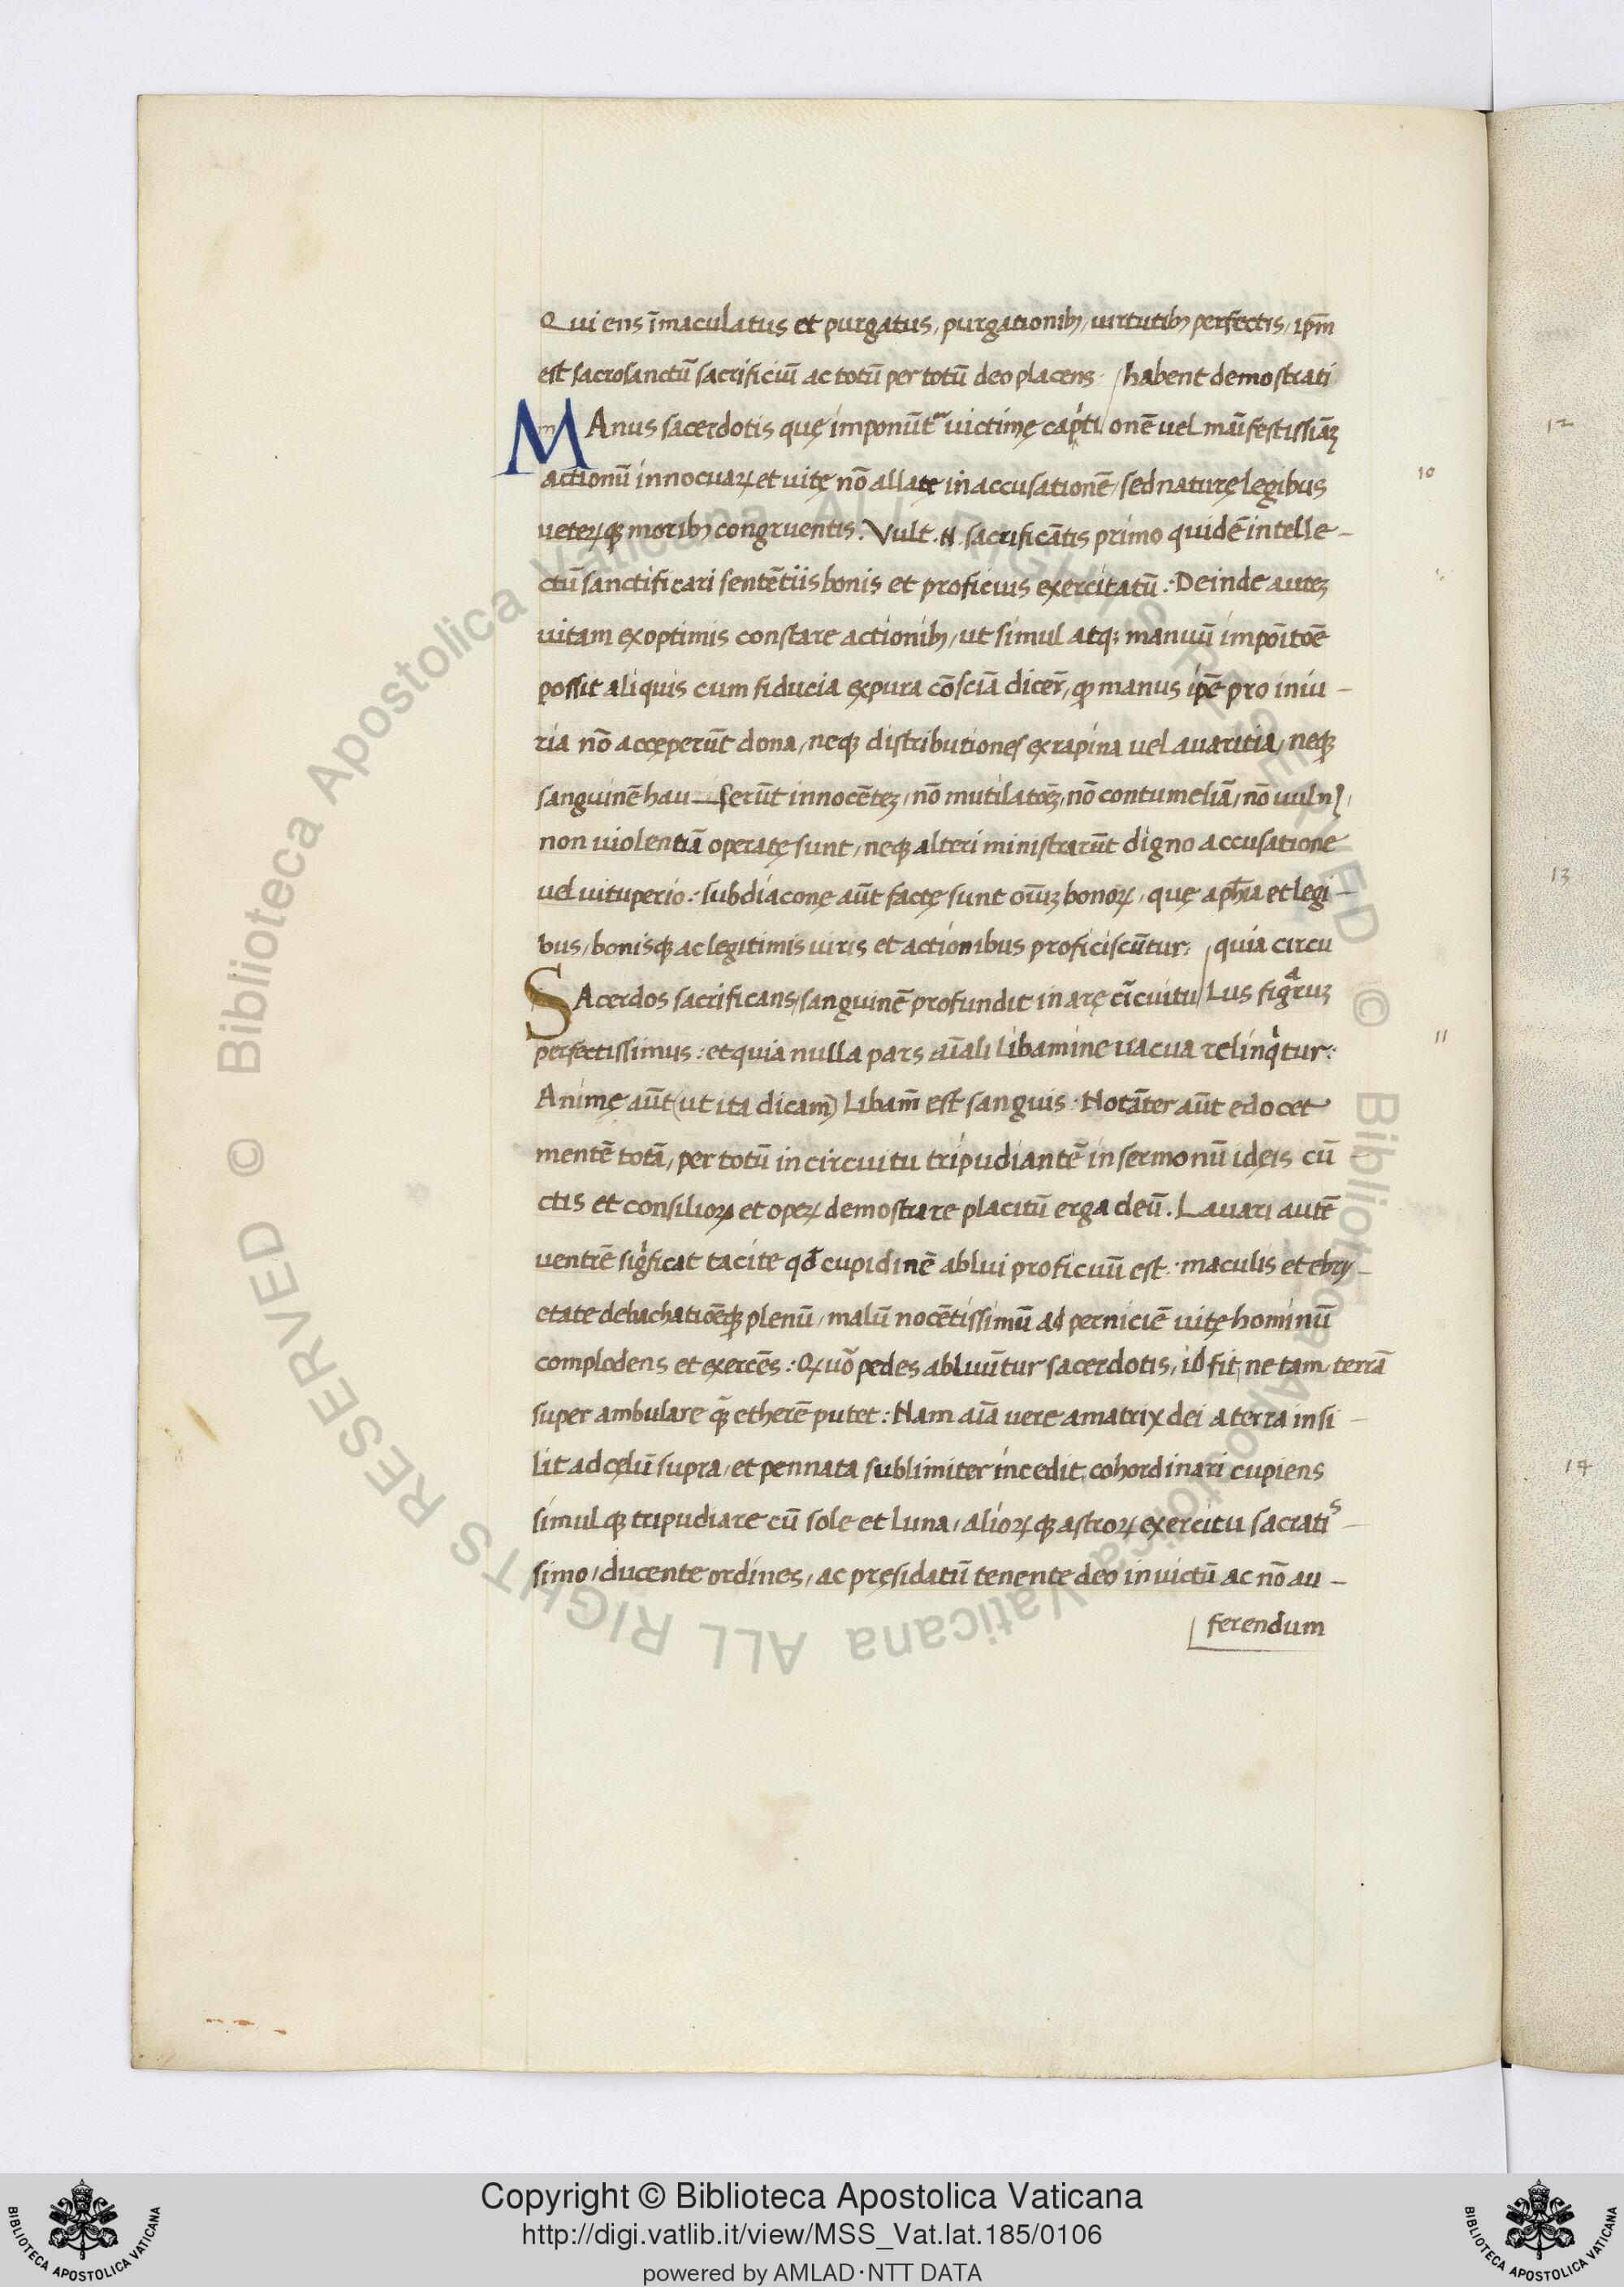 Qui ens īmaculatus et purgatus, purgationibꝫ, uirtutibꝫ perfectis, ip̄m
est sacrosanctū sacrificiū ac totū per totū deo placens. habent demostrati
MAnus sacerdotis quę imponūtʳ uictimę capiti onē uel manifestissiāꝫ
actionū innocuaꝝ et uitę nō allate in accusationē, sed naturę legibus
ueteꝝqꝫ moribꝫ congruentis. Vult .n. sacrificātis primo quidē intelle-
ctū sanctificari sentētiis bonis et proficuis exercitatū: Deinde auteꝫ
uitam ex optimis constare actionibꝫ, ut simul atqꝫ manuū impoītōē
possit aliquis cum fiducia ex pura cōsciā dicer̄, ꝙ manus ipē pro iniu-
ria nō accęperūt dona, neqꝫ distributiones ex rapina uel auaritia, neqꝫ
sanguinē hau-serūt innocēteꝫ, nō mutilatōeꝫ, nō contumeliā, nō uuln
non uiolentiā operatę sunt, neqꝫ alteri ministrarūt digno accusatione
uel uituperio: subdiaconę aūt factę sunt oīuꝫ bonoꝝ, quę a ph̄ia et legi-
bus, bonisqꝫ ac legitimis uiris et actionibus proficiscūtur: quia circu
SAcerdos sacrificans, sanguinē profundit in arę cīrcuitu lus figᵃruꝫ
perfectissimus: et quia nulla pars aīali libamine uacua relinqⁱtur:
Animę aūt (ut ita dicam) Libam̄ est sanguis. Notāter aūt edocet
mentē totā, per totū in circuitu tripudiantē in sermonū ideis cū-
ctis et consilioꝝ et opeꝝ demostrare placitū erga deū. Lauari autē
uentrē sigⁱficat tacite qđ cupidinē ablui proficuū est: maculis et ebry-
etate debachatiōēqꝫ plenū, malū nocētissimū ad perniciē uitę hominū
complodens et exercēs: Qꝝ uō pedes abluūtur sacerdotis, id fit, ne tam terrā
super ambulare qꝫ etherē putet: Nam aīa uere amatrix dei a terra insi-
lit ad cęlū supra, et pennata sublimiter incedit, cohordinari cupiens
simulqꝫ tripudiare cū sole et luna, alioꝝqꝫ astroꝝ exercitu sacratiˢ-
simo, ducente ordines, ac pręsidatū tenente deo inuictū ac nō au-
ferendum
10
11
12
13
14
© Biblioteca Apostolica Vaticana ALL RIGHTS RESERVED © Biblioteca Apostolica Vaticana ALL RIGHTS RESERVED
Copyright © Biblioteca Apostolica Vaticana
http://digi.vatlib.it/view/MSS_Vat.lat.185/0106
powered by AMLAD·NTT DATA
BIBLIOTECA APOSTOLICA VATICANA
BIBLIOTECA APOSTOLICA VATICANA